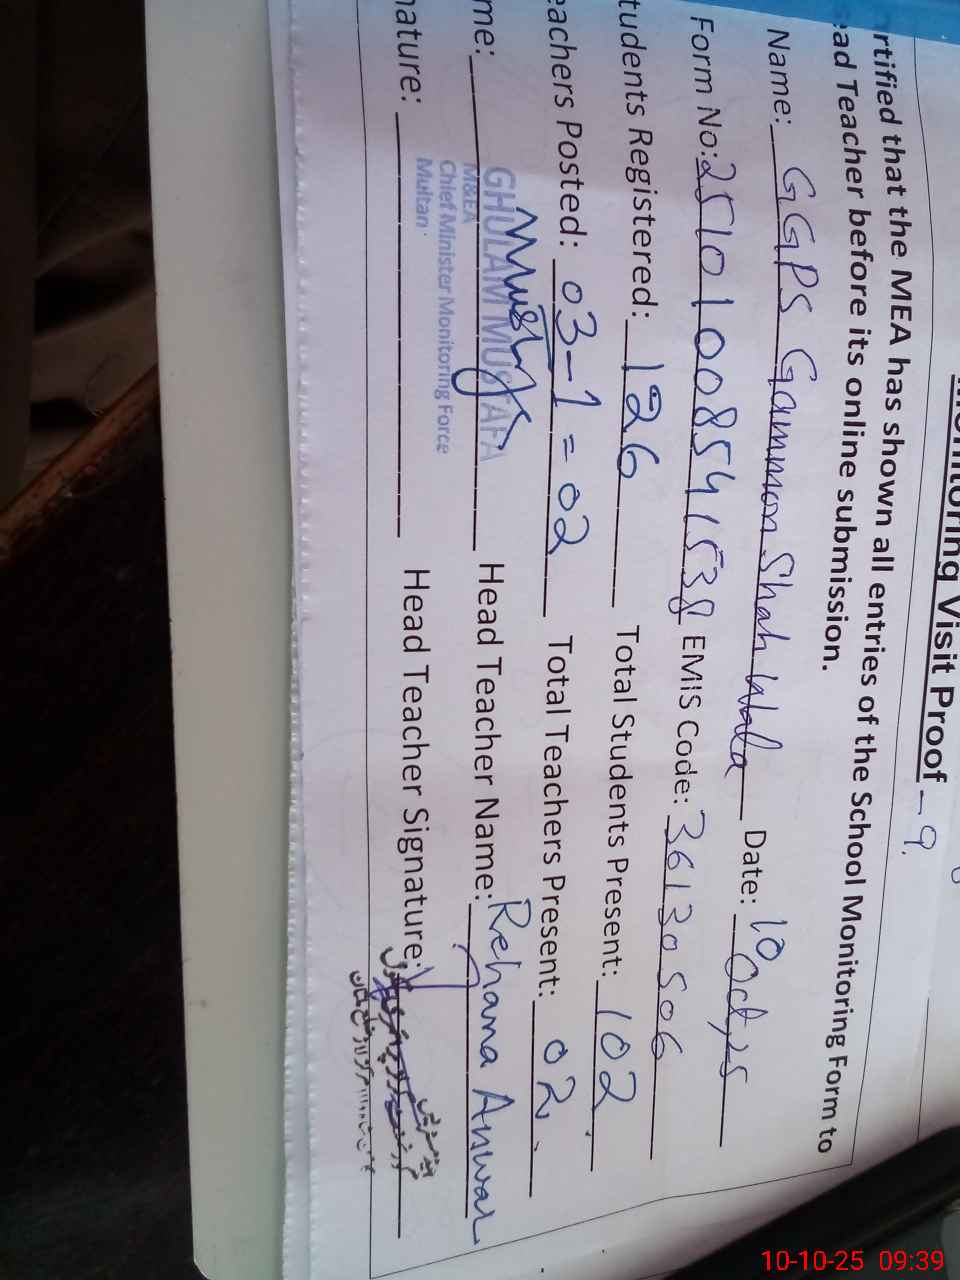 nitoring Visit Proof - 9.
rtified that the MEA has shown all entries of the School Monitoring Form to
ead Teacher before its online submission.
Name: GGPS Gammon Shah Wala Date: 10 Oct, 25
Form No: 25101008541538 EMIS Code: 36130506
tudents Registered: 126 Total Students Present: 102
eachers Posted: 03-1=02 Total Teachers Present: 02
me: GHULAM MUSTAFA Head Teacher Name: Rehana Anwar
M&EA
Chief Minister Monitoring Force
Multan
nature: Head Teacher Signature:
10-10-25 09:39